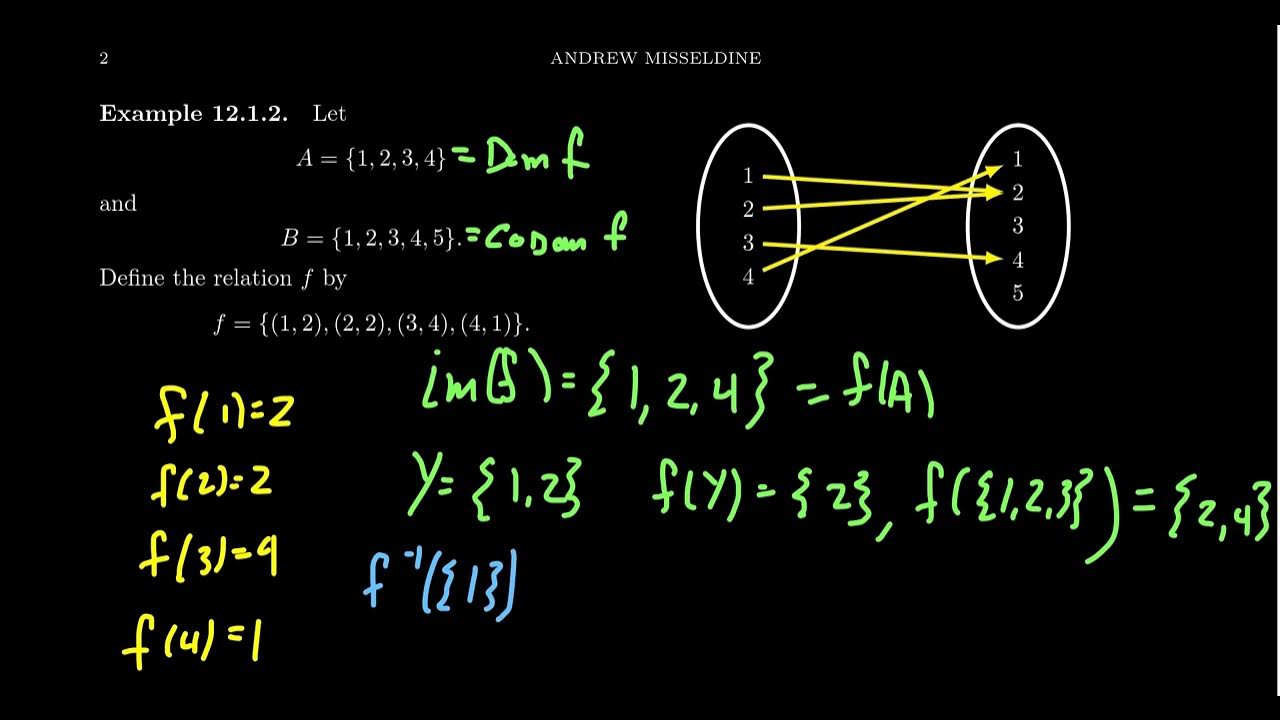 2 ANDREW MISSELDINE
Example 12.1.2. Let
A = {1, 2, 3, 4} = Dom f
and
B = {1, 2, 3, 4, 5}. = CoDom f
Define the relation f by
f = {(1, 2), (2, 2), (3, 4), (4, 1)}.
1
2
3
4
1
2
3
4
5
im(f) = {1, 2, 4} = f(A)
f(1)=2
Y = {1,2} f(Y) = {2}, f({1,2,3}) = {2,4}
f(2)=2
f(3)=4
f⁻¹({1})
f(4)=1